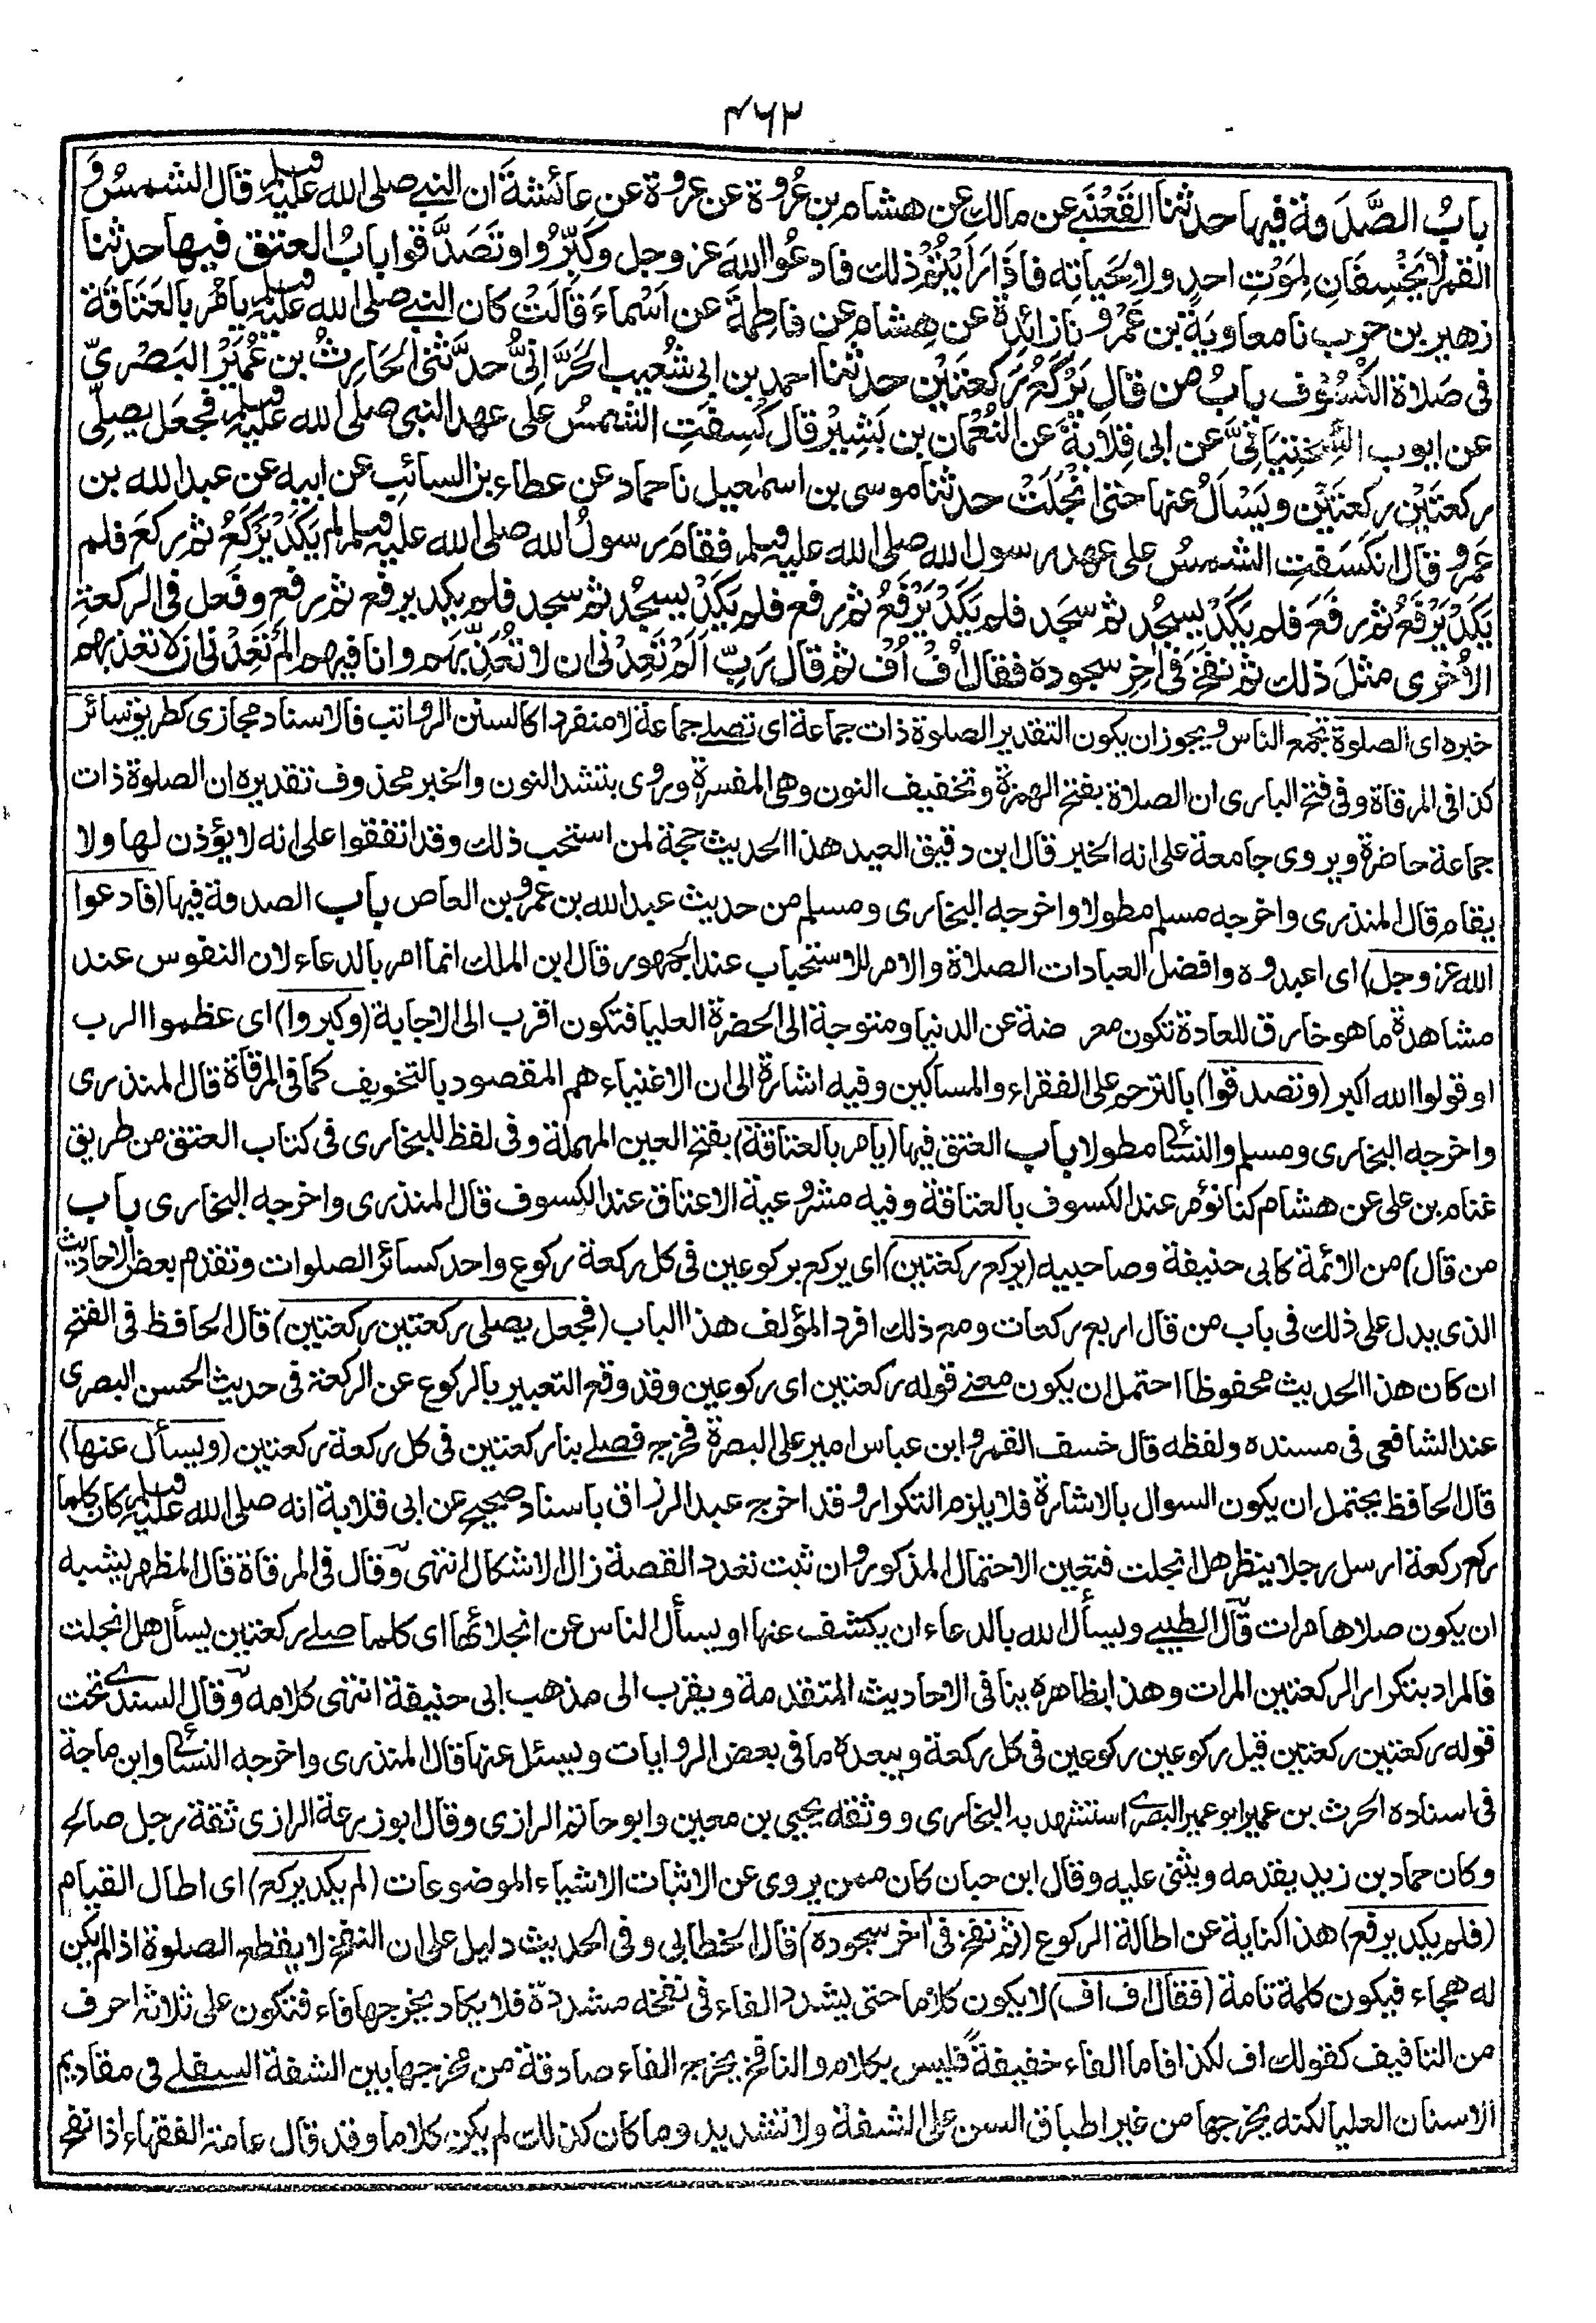 ٤٦٣
بابُ الصَّدَقة فيها حدثنا القَعْنَبي عن مالك عن هشام بن عُروة عن عروة عن عائشة ان النبي صلى الله عليه وسلم قال الشمسُ و
القمر لا يَخْسِفَانِ لِمَوْتِ احدٍ ولا لحَيَاتِه فاذَا رَاَيْتُمْ ذلك فادعُوا اللهَ عز وجل وكَبِّرُوا وتَصَدَّقوا بابُ العتق فيها حدثنا
زهير بن حرب نا معاوية بن عَمْرٍو نا زائدة عن هِشام عن فاطِمَةَ عن اَسْماءَ قَالَتْ كان النبي صلى الله عليه وسلم يامُر بالعَتَاقَة
فى صَلاة الكُسُوْف بابُ من قال يَرْكَعُ رَكعتَيْن حدثنا احمد بن ابى شُعيب الحَرَّانِىُّ حدَّثنى الحَارِثُ بن عُمَيْر البَصْرىّ
عن ايوب السَّخِتِيَانِىّ عن ابى قِلَابَةَ عن النُعْمان بن بَشِيْر قال كُسِفَتِ الشمسُ على عهد النبى صلى الله عليه وسلم فجعَل يصلِّى
ركعتَيْن ركعتَيْن ويَسْاَلُ عنها حتى انْجَلَتْ حدثنا موسى بن اسمٰعيل نا حماد عن عطاء بن السائِب عن ابيه عن عبد الله بن
عَمرو قال انكَسَفَتِ الشمسُ على عهد رسول الله صلى الله عليه وسلم فقامَ رسولُ الله صلى الله عليه وسلم لم يَكَدْ يَرْكَعُ ثم ركعَ فلم
يَكَدْ يَرْفَعُ ثم رفَعَ فلم يَكَدْ يسجُد ثم سجَد فلم يَكَدْ يَرْفَعُ ثم رفع فلم يَكَدْ يسجُد ثم سجد فلم يكد يرفع ثم رفع وفَعل فى الركعة
الاُخْرى مثلَ ذلك ثم نفَخَ فى اٰخِرِ سجوده فقال اُفْ اُفْ ثم قال رَبِّ اَلَمْ تَعِدْنِى ان لا تُعَذِّبَهُم وانا فيهم اَلمْ تَعِدْنى اَن لا تعذبهم
خبره اى الصلوة تجمع الناس ويجوز ان يكون التقدير الصلوة ذات جماعة اى تصلى جماعة لا منفردا كالسنن الرواتب فالاسناد مجازى كطريق سائر
كذا فى المرقاة وفى فتح البارى ان الصلاة بفتح الهمزة وتخفيف النون وهى المفسرة وروى بتشد النون والخبر محذوف تقديره ان الصلوة ذات
جماعة حاضرة ويروى جامعة على انه الخبر قال ابن دقيق العيد هذا الحديث حجة لمن استحب ذلك وقد اتفقوا على انه لا يؤذن لها ولا
يقام قال المنذرى واخرجه مسلم مطولا واخرجه البخارى ومسلم من حديث عبد الله بن عمرو بن العاص باب الصدقة فيها (فادعوا
الله عز وجل) اى اعبدوه وافضل العبادات الصلاة والامر للاستحباب عند الجمهور قال ابن الملك انما امر بالدعاء لان النفوس عند
مشاهدة ما هو خارق للعادة تكون معرضة عن الدنيا ومتوجة الى الحضرة العليا فتكون اقرب الى الاجابة (وكبروا) اى عظموا الرب
او قولوا الله اكبر (وتصدقوا) بالترحم على الفقراء والمساكين وفيه اشارة الى ان الاغنياء هم المقصود بالتخويف كما فى المرقاة قال المنذرى
واخرجه البخارى ومسلم والنسائى مطولا باب العتق فيها (يامر بالعتاقة) بفتح العين المهملة وفى لفظ للبخارى فى كتاب العتق من طريق
غنام بن على عن هشام كنا نؤمر عند الكسوف بالعتاقة وفيه مشروعية الاعتاق عند الكسوف قال المنذرى واخرجه البخارى باب
من قال) من الائمة كابى حنيفة وصاحبيه (يركع ركعتين) اى يركع بركوعين فى كل ركعة ركوع واحد كسائر الصلوات وتقدم بعض الاحاديث
الذى يدل على ذلك فى باب من قال اربع ركعات ومع ذلك افرد المؤلف هذا الباب (فجعل يصلى ركعتين ركعتين) قال الحافظ فى الفتح
ان كان هذا الحديث محفوظا احتمل ان يكون معنى قوله ركعتين اى ركوعين وقد وقع التعبير بالركوع عن الركعة فى حديث الحسن البصرى
عند الشافعى فى مسنده ولفظه قال خسف القمر وابن عباس امير على البصرة فخرج فصلى بنا ركعتين فى كل ركعة ركعتين (ويسأل عنها)
قال الحافظ يحتمل ان يكون السوال بالاشارة فلا يلزم التكرار وقد اخرج عبد الرزاق باسناد صحيح عن ابى قلابة انه صلى الله عليه وسلم كان كلما
ركع ركعة ارسل رجلا ينظر هل انجلت فتعين الاحتمال المذكور وان ثبت تعدد القصة زال الاشكال انتهى وقال فى المرقاة قال المظهر يشبه
ان يكون صلاها مرات قال الطيبى ويسأل الله بالدعاء ان يكشف عنها او يسأل الناس عن انجلائها اى كلما صلى ركعتين يسأل هل انجلت
فالمراد بتكرار الركعتين المرات وهذا بظاهره ينافى الاحاديث المتقدمة ويقرب الى مذهب ابى حنيفة انتهى كلامه وقال السندى تحت
قوله ركعتين ركعتين قيل ركوعين ركوعين فى كل ركعة ويبعده ما فى بعض الروايات ويسئل عنها قال المنذرى واخرجه النسائى وابن ماجة
فى اسناده الحرث بن عمير ابو عمير البصرى استشهد به البخارى ووثقه يحيى بن معين وابو حاتم الرازى وقال ابو زرعة الرازى ثقة رجل صالح
وكان حماد بن زيد يقدمه ويثنى عليه وقال ابن حبان كان ممن يروى عن الاثبات الاشياء الموضوعات (لم يكد يركع) اى اطال القيام
(فلم يكد يرفع) هذا كناية عن اطالة الركوع (ثم نفخ فى آخر سجوده) قال الخطابى وفى الحديث دليل على ان النفخ لا يقطع الصلوة اذا لم يكن
له هجاء فيكون كلمة تامة (فقال اف اف) لا يكون كلاما حتى يشدد الفاء فى نفخه مشددة فلا يكاد يخرجها فاء فتكون على ثلاثة احرف
من التافيف كقولك اف لكذا فاما الفاء خفيفة فليس بكلام والنافخ يخرج الفاء صادقة من مخرجها بين الشفة السفلى فى مقاديم
الاسنان العليا لكنه يخرجها من غير اطباق السن على الشفة ولا تشديد وما كان كذلك لم يكن كلاما وقد قال عامة الفقهاء اذا نفخ